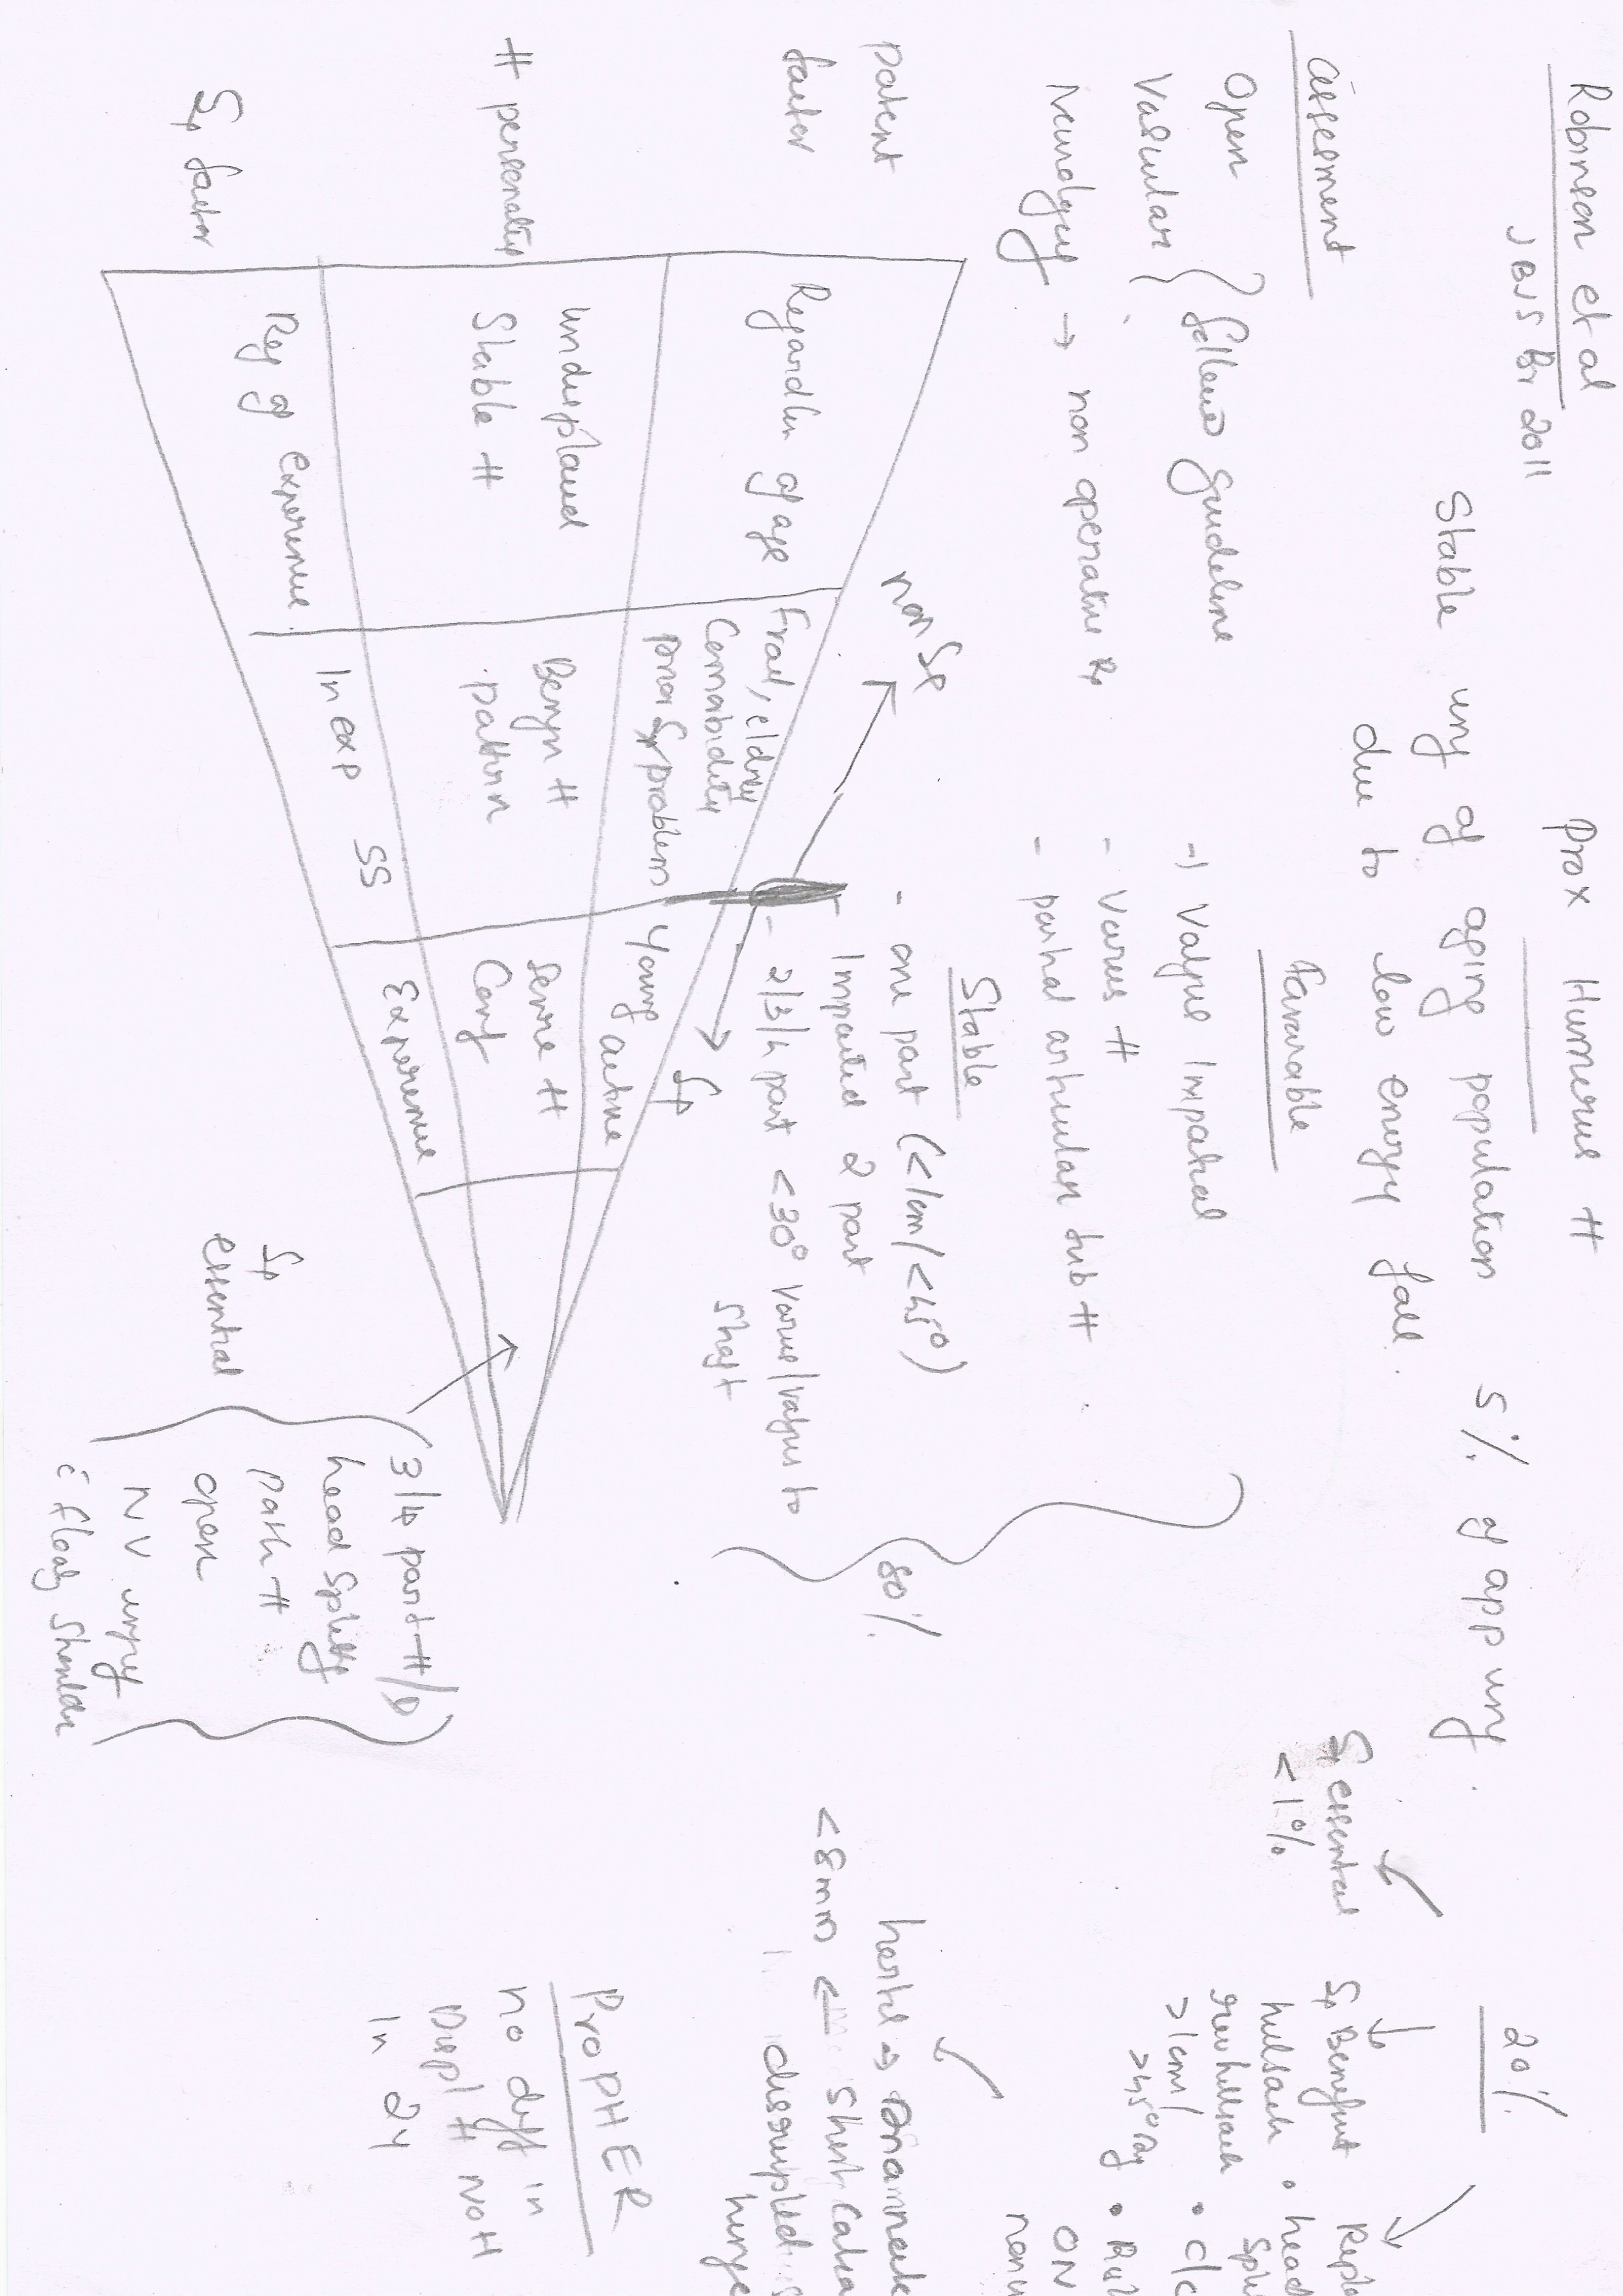 Robinson et al
JBJS Br 2011
Prox Humerus #
Stable ury of aging population 5% of app ury.
due to low energy fall.
assesment
Open
Vascular
follow guideline
→ non operative Rx
Favarable
→ Valgus Impatial
- Varus #
- partial articular tub #
Stable
- one part (<1cm/<45°)
- Impacted 2 part
- 2/3/4 part <30° Varus/Valgus to
Shaft
80%
20%
Sx essential
<1%
Sx Benefint
hillsach
rev hillsach
>1cm/
>45°
Repl
• head
Spli
• c/c
ON
non u
hertel → Ana neck
<8mm ← Short Calca
disrupted
hinge
ProPHER
no diff in
Displ # NoH
In 2y
patent
factor
# personality
Sx factor
non Sx
Sx
Regardles of age
Frail, eldrly
Comorbidity
prior Sx problem
Young
active
Undisplaced
Stable #
Benign #
pattern
Sevre #
Conf
Reg of Experience
In exp SS
Experience
Sx
essential
3/4 part #/D
head Splitty
path #
open
NV injury
c̄ floaty Shoulder